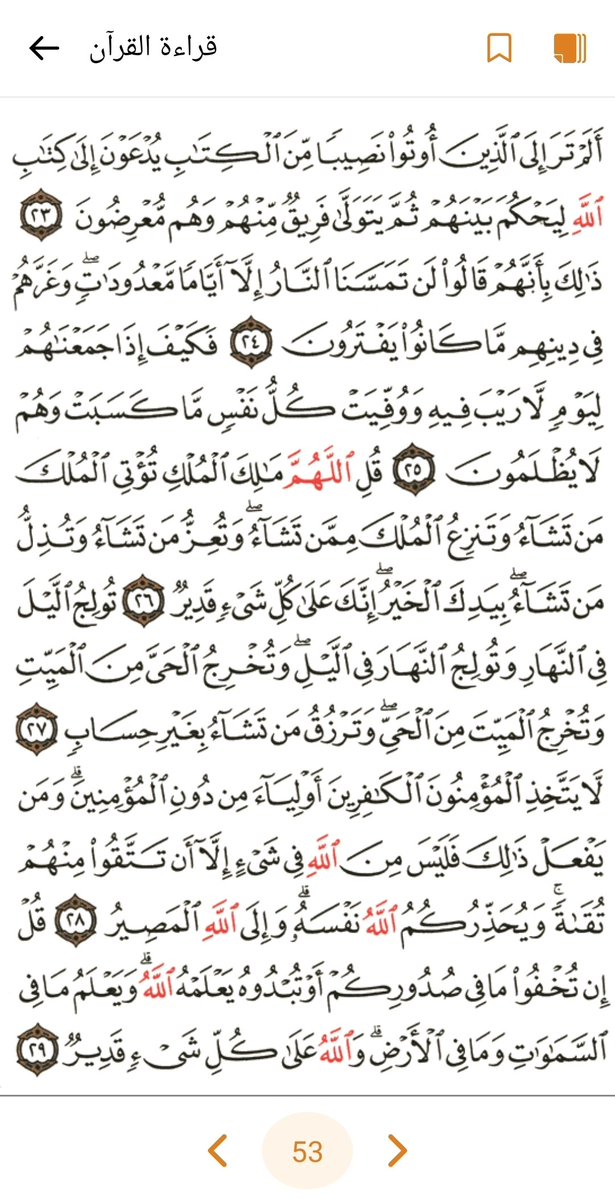 قراءة القرآن
أَلَمْ تَرَ إِلَى ٱلَّذِينَ أُوتُوا۟ نَصِيبًا مِّنَ ٱلْكِتَٰبِ يُدْعَوْنَ إِلَىٰ كِتَٰبِ
ٱللَّهِ لِيَحْكُمَ بَيْنَهُمْ ثُمَّ يَتَوَلَّىٰ فَرِيقٌ مِّنْهُمْ وَهُم مُّعْرِضُونَ ٢٣
ذَٰلِكَ بِأَنَّهُمْ قَالُوا۟ لَن تَمَسَّنَا ٱلنَّارُ إِلَّآ أَيَّامًا مَّعْدُودَٰتٍ ۖ وَغَرَّهُمْ
فِى دِينِهِم مَّا كَانُوا۟ يَفْتَرُونَ ٢٤ فَكَيْفَ إِذَا جَمَعْنَٰهُمْ
لِيَوْمٍ لَّا رَيْبَ فِيهِ وَوُفِّيَتْ كُلُّ نَفْسٍ مَّا كَسَبَتْ وَهُمْ
لَا يُظْلَمُونَ ٢٥ قُلِ ٱللَّهُمَّ مَٰلِكَ ٱلْمُلْكِ تُؤْتِى ٱلْمُلْكَ
مَن تَشَآءُ وَتَنزِعُ ٱلْمُلْكَ مِمَّن تَشَآءُ ۖ وَتُعِزُّ مَن تَشَآءُ وَتُذِلُّ
مَن تَشَآءُ ۖ بِيَدِكَ ٱلْخَيْرُ ۖ إِنَّكَ عَلَىٰ كُلِّ شَىْءٍ قَدِيرٌ ٢٦ تُولِجُ ٱلَّيْلَ
فِى ٱلنَّهَارِ وَتُولِجُ ٱلنَّهَارَ فِى ٱلَّيْلِ ۖ وَتُخْرِجُ ٱلْحَىَّ مِنَ ٱلْمَيِّتِ
وَتُخْرِجُ ٱلْمَيِّتَ مِنَ ٱلْحَىِّ ۖ وَتَرْزُقُ مَن تَشَآءُ بِغَيْرِ حِسَابٍ ٢٧
لَّا يَتَّخِذِ ٱلْمُؤْمِنُونَ ٱلْكَٰفِرِينَ أَوْلِيَآءَ مِن دُونِ ٱلْمُؤْمِنِينَ ۖ وَمَن
يَفْعَلْ ذَٰلِكَ فَلَيْسَ مِنَ ٱللَّهِ فِى شَىْءٍ إِلَّآ أَن تَتَّقُوا۟ مِنْهُمْ
تُقَىٰةً ۗ وَيُحَذِّرُكُمُ ٱللَّهُ نَفْسَهُۥ ۗ وَإِلَى ٱللَّهِ ٱلْمَصِيرُ ٢٨ قُلْ
إِن تُخْفُوا۟ مَا فِى صُدُورِكُمْ أَوْ تُبْدُوهُ يَعْلَمْهُ ٱللَّهُ ۗ وَيَعْلَمُ مَا فِى
ٱلسَّمَٰوَٰتِ وَمَا فِى ٱلْأَرْضِ ۗ وَٱللَّهُ عَلَىٰ كُلِّ شَىْءٍ قَدِيرٌ ٢٩
53